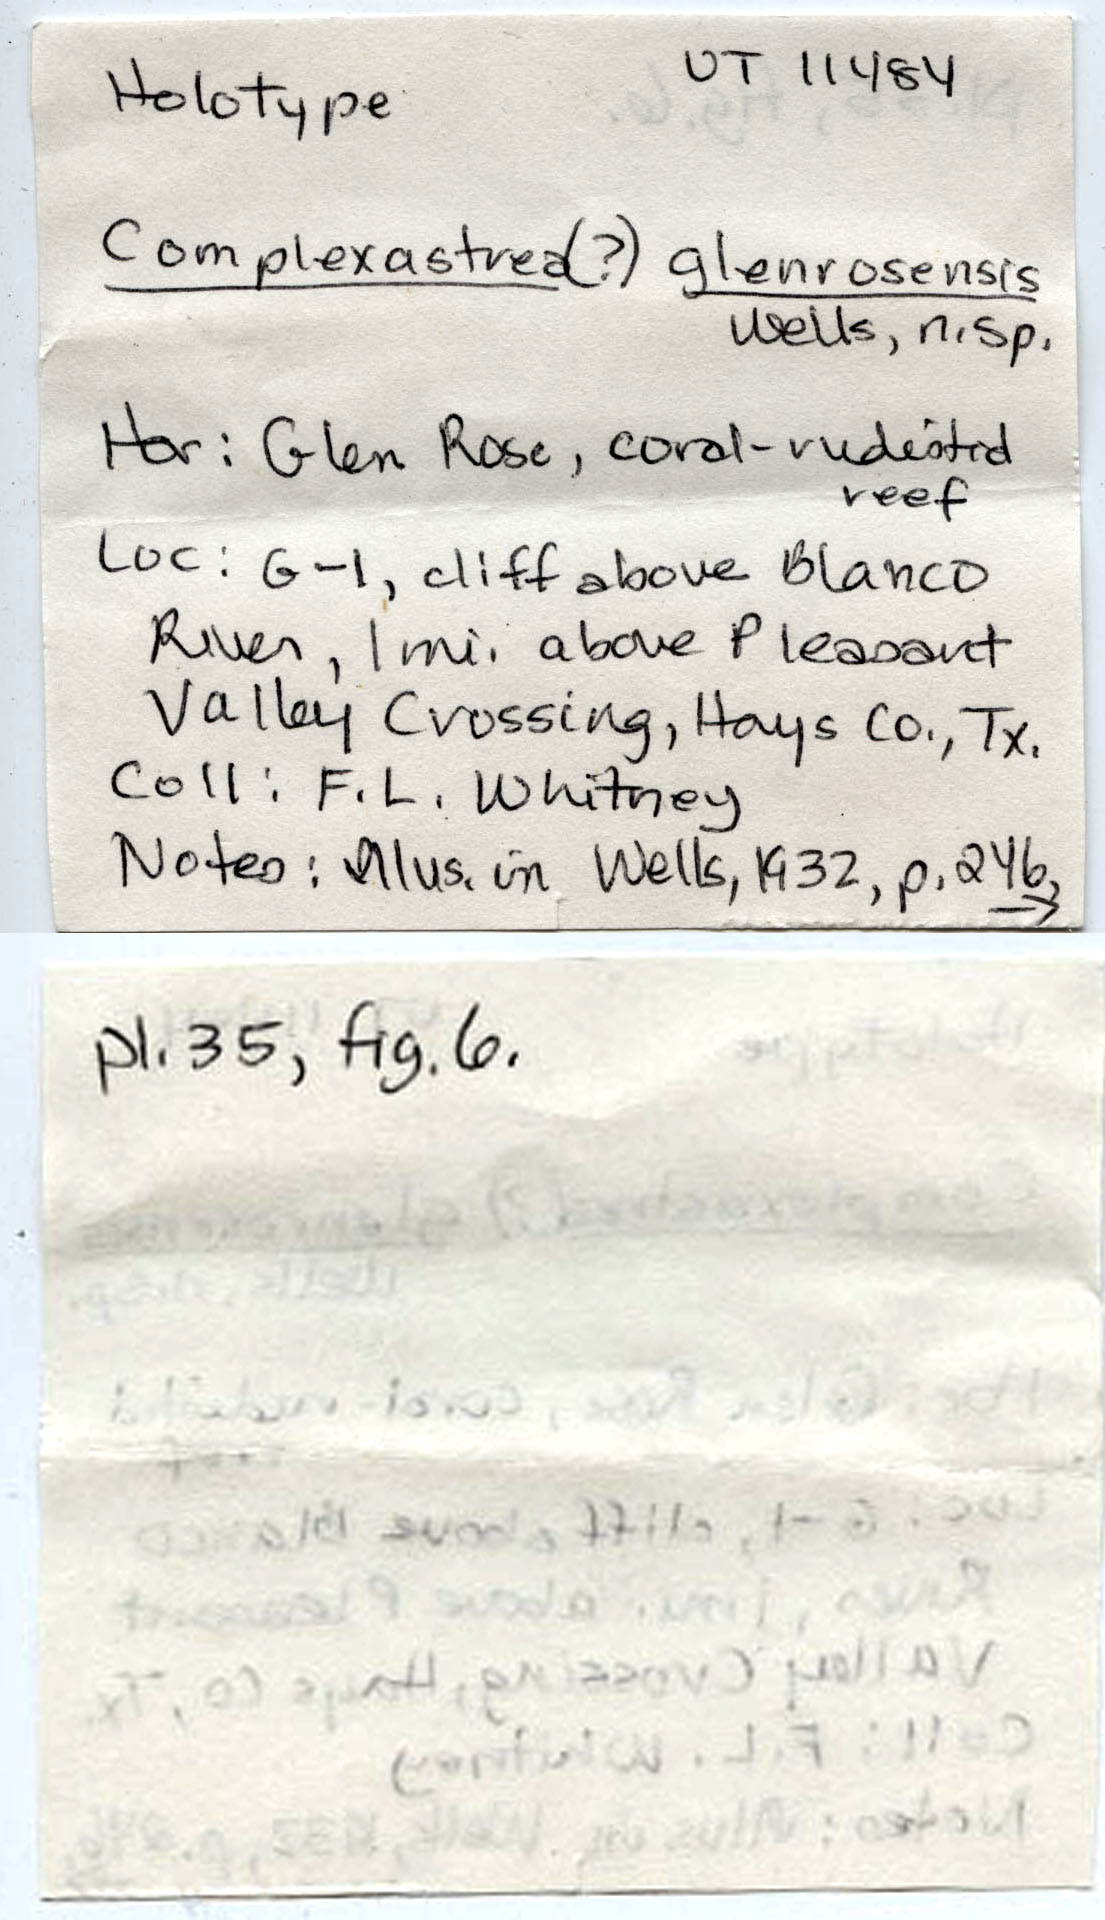 Holotype
UT 11484
Complexastrea(?) glenrosensis
Wells, n.sp.
Hor: Glen Rose, coral-rudistid
reef
Loc: G-1, cliff above Blanco
River, 1 mi. above Pleasant
Valley Crossing, Hays Co., Tx.
Coll: F.L. Whitney
Notes: Illus. in Wells, 1932, p. 246,
→
pl. 35, fig. 6.